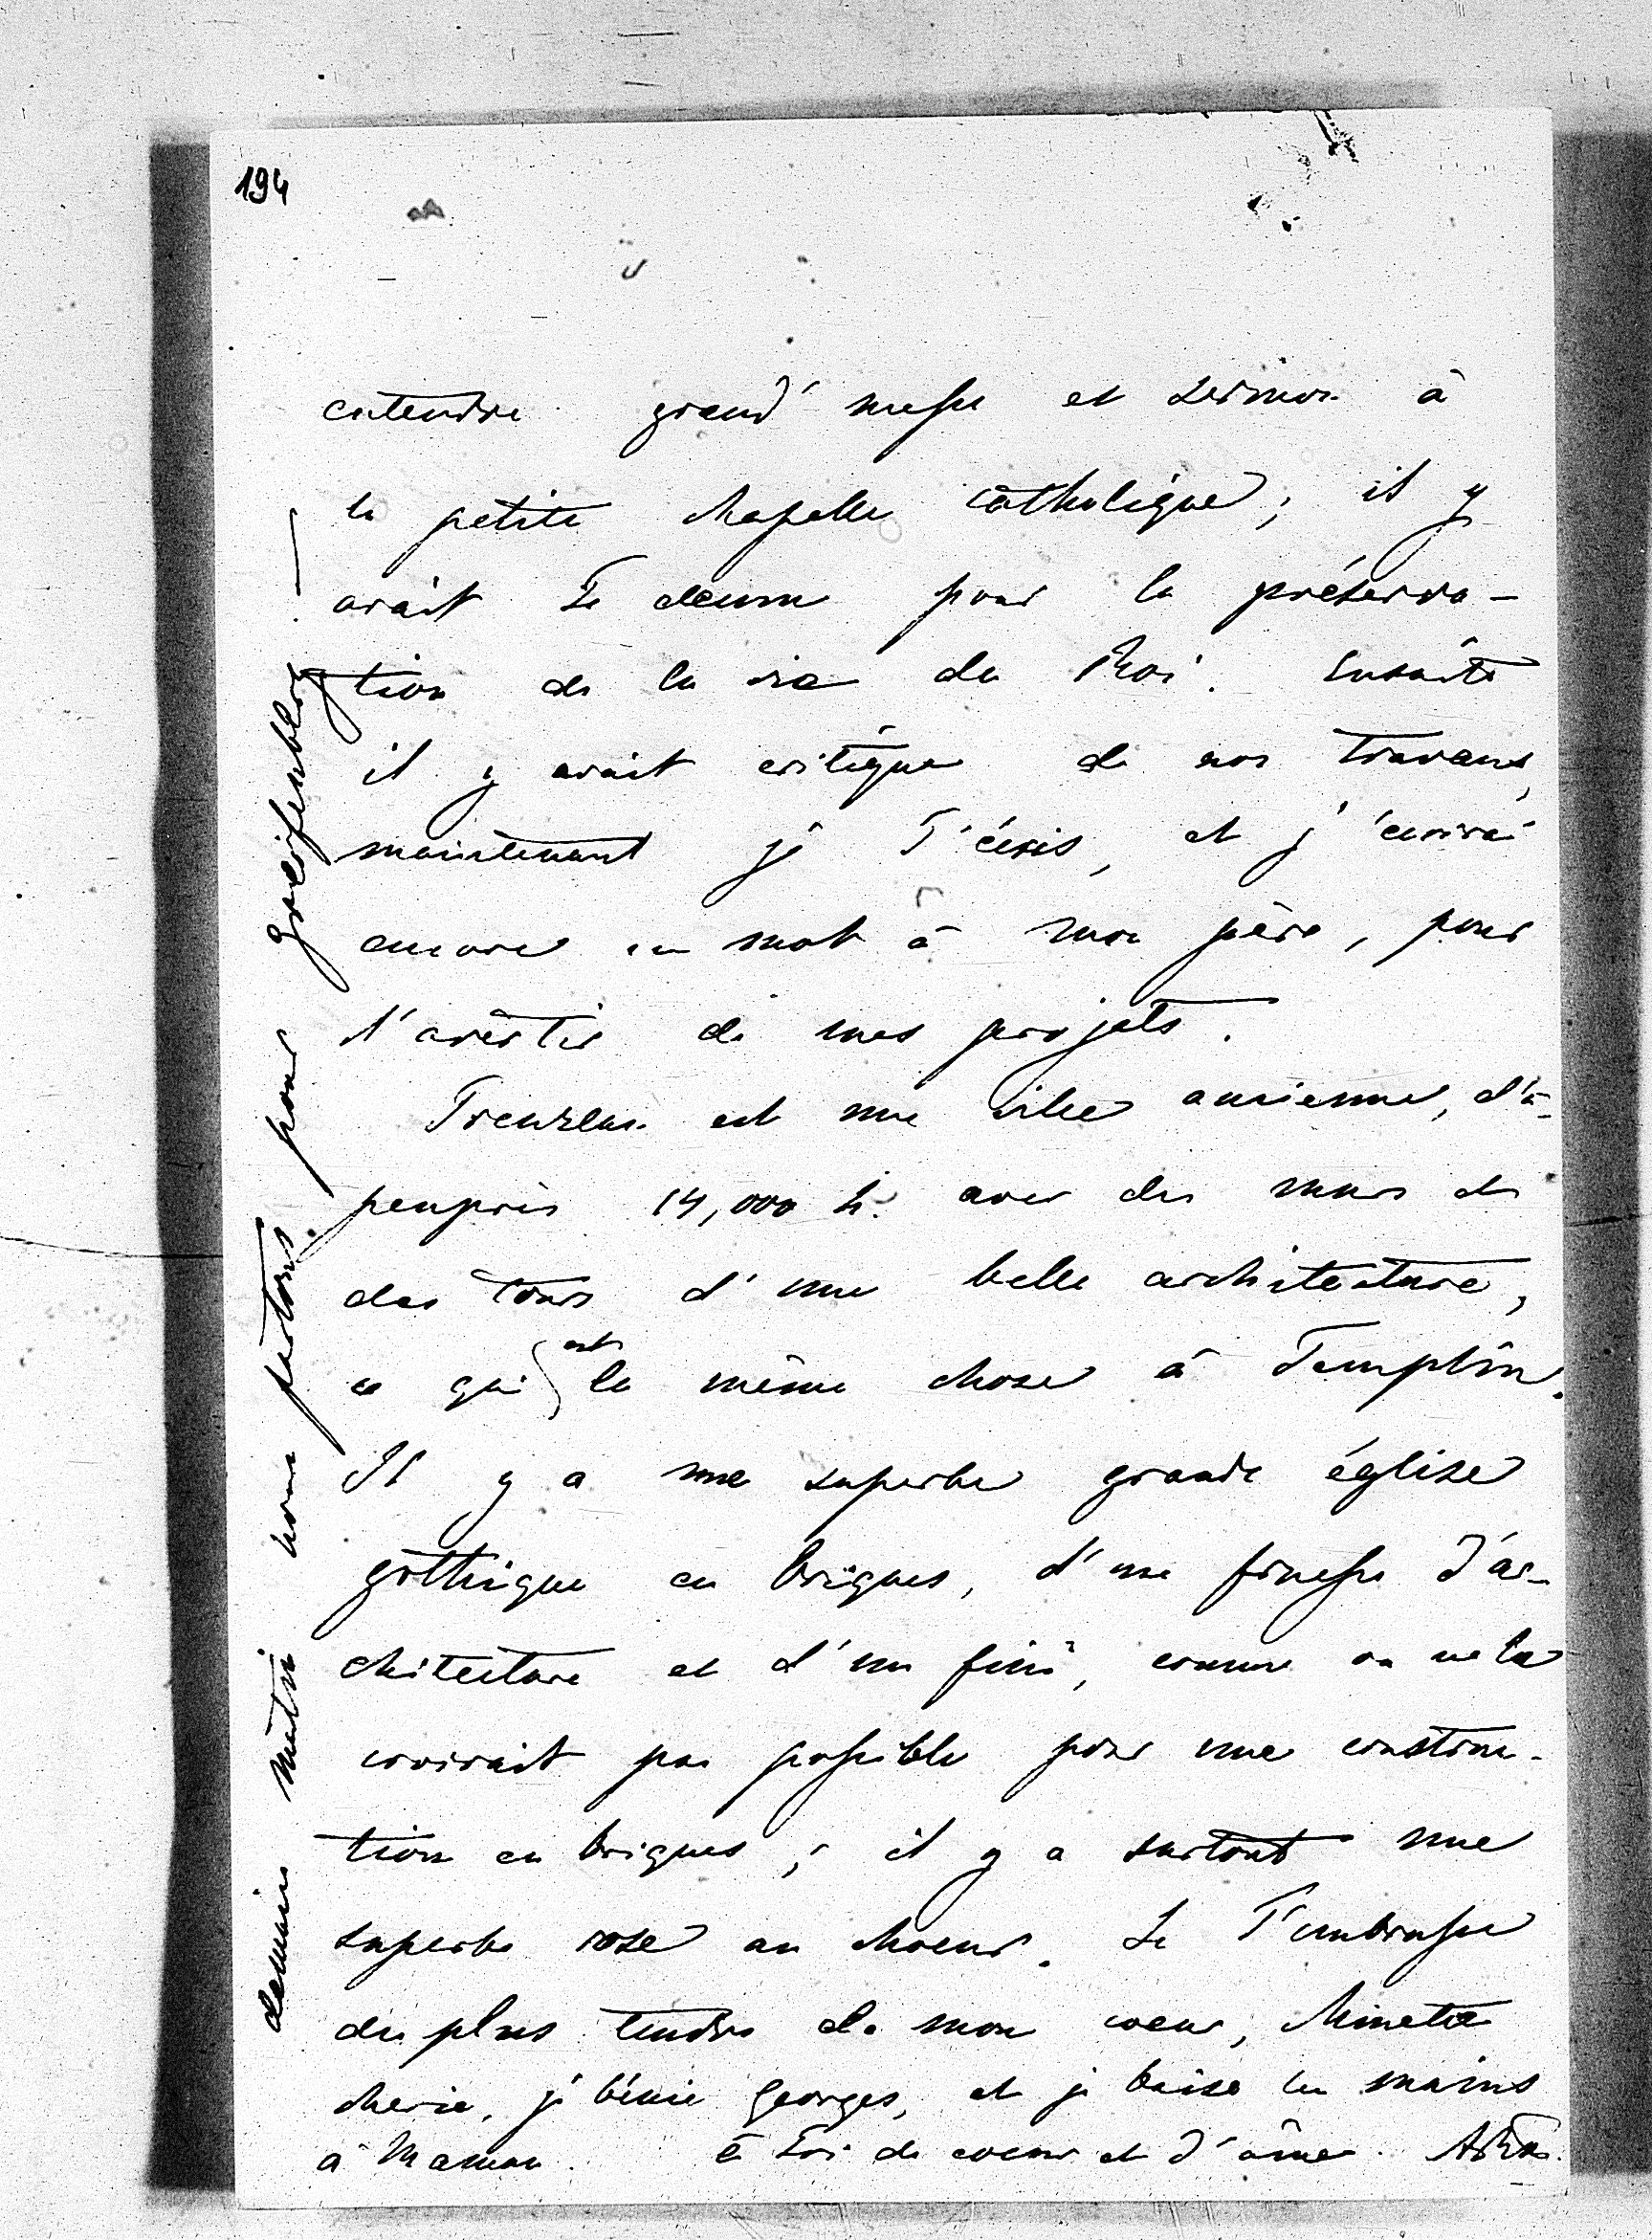 194
entendre grand' messe et sermon à
la petite chapelle catholique; il y
avait Te deum pour la préserva-
tion de la vie du Roi. Ensuite
il y avait critique de nos travaux,
maintenant je T'écris, et j'écrirai
encore un mot à mon père, pour
l'avertir de mes projets.
Prenzlau est une ville ancienne, d'à-
peuprès 14,000 h. avec des murs et
des tours d'une belle architecture,
ce qui est la même chose à Templin.
Il y a une superbe grande église
gothique en briques, d'une finesse d'ar-
chitecture et d'un fini, comme on ne le
croirait pas possible pour une construc-
tion en briques; il y a surtout une
superbe rose au choeur. Je T'embrasse
du plus tendre de mon coeur, Minette
cherie, je bénie Georges, et je baise les mains
à Maman. à Toi de coeur et d'âme.
demain matin nous partons pour Greiffenberg. —